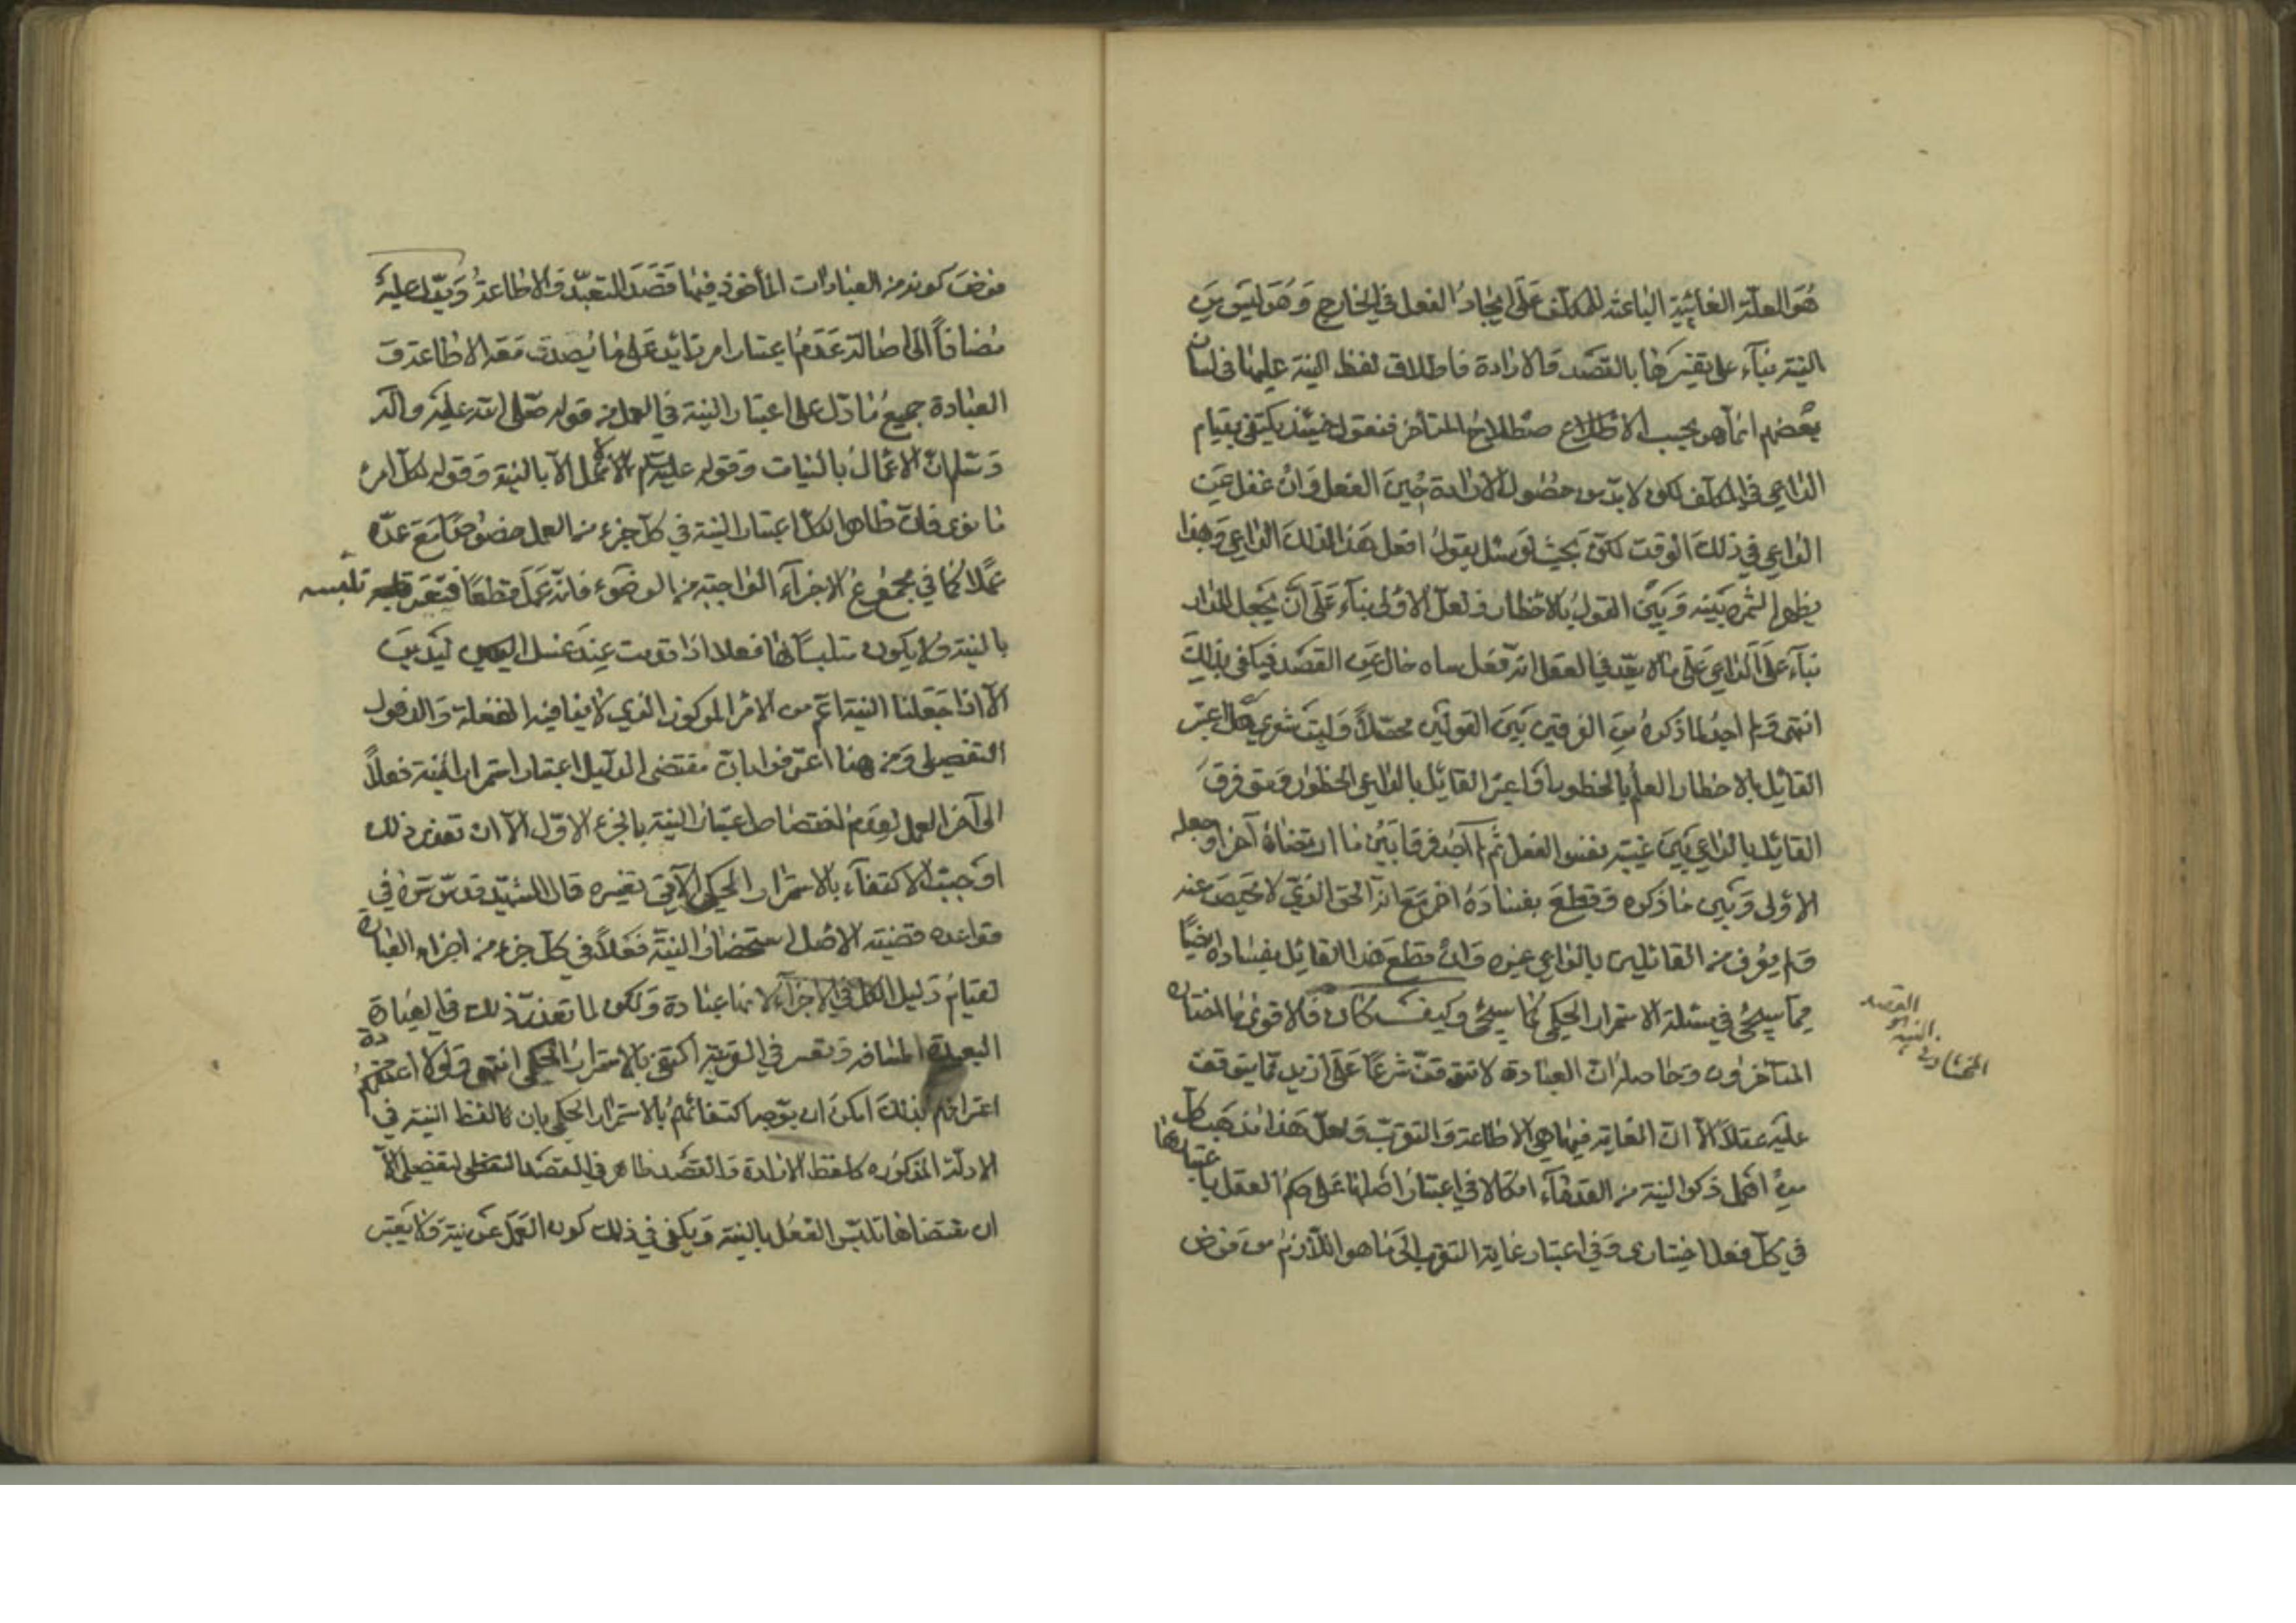 هو العلة الغائية الباعثة للمكلف على ايجاد الفعل في الخارج وهو ليس من
النية بناء على تفسيرها بالقصد والارادة فاطلاق لفظ النية عليها في لسان
بعضهم انما هو بحسب الاصطلاح المتأخر فنقول حينئذ يكتفى بقيام
الداعي في المكلف لكن لا بد من حصول الارادة حين الفعل وان غفل عن
الداعي في ذلك الوقت لكن بحيث لو سئل يقول افعل هذا لذلك الداعي وبهذا
يظهر الثمرة بينه وبين القول بالاخطار ولعل الاولى بناء على ان يجعل المدار
بناء على الداعي على ما لا يعد في العقل انه فعل ساه خال عن القصد فيكفى بذلك
انتهى ولم اجد لما ذكره من الفرقين بين القولين محصلا وليت شعري هل اعتبر
القائل بالاخطار العلم بالخطور او اعتبر القائل بالداعي الخطور ومتى فرق
القائل بالداعي بين غيبة نفس الفعل ثم لم اجد فرقا بين ما ارتضاه آخرا وجعله
الاولى وبين ما ذكره وقطع بفساده اخر مع انه الحق الذي لا محيص عنه
ولم يعرف من القائلين بالداعي غيره وان قطع هذا القائل بفساده ايضا
فيما سيجئ في مسئلة الاستمرار الحكمي كما سيجئ وكيف كان فالاقوى ما اختاره
القصد
النية هو
المتأخرون وحاصله ان العبادة لا تتوقف شرعا على ازيد مما يتوقف
عليه عقلا الا ان الغاية فيها هي الاطاعة والتقرب ولعل هذا مذهب كل
من اهمل ذكر النية من القدماء اتكالا في اعتبار اصلها على حكم العقل باعتبارها
في كل فعل اختياري وفي اعتبار غاية التقرب الى ما هو اللازم من فرض
فرض كونه من العبادات المأخوذ فيها قصد التعبد والاطاعة ويدل عليه
مضافا الى اصالة عدم اعتبار امر زائد على ما يصدق معه الاطاعة و
العبادة جميع ما دل على اعتبار النية في العمل من قوله صلى الله عليه وآله
وسلم ان الاعمال بالنيات وقوله عليه السلام لا عمل الا بالنية وقوله لكل امرء
ما نوى فان ظاهر الكل اعتبار النية في كل جزء من العمل خصوصا مع عده
عملا كما في مجموع الاجزاء الواجبة من الوضوء فانه عمل قطعا فيعتبر تلبسه
بالنية ولا يكون متلبسا بها فعلا اذا قدمت عند غسل اليدين
الا اذا جعلنا النية اعم من الامر المركوز الذي لا ينافيه الغفلة والذهول
التفصيلي ومن هنا اعترفوا بان مقتضى الدليل اعتبار استمرار النية فعلا
الى آخر العمل لعدم اختصاص اعتبار النية بالجزء الاول الا ان تعذر ذلك
اوجبت الاكتفاء بالاستمرار الحكمي الآتي تفسيره قال الشهيد قدس سره في
قواعده قضية الاصل استحضار النية فعلا في كل جزء من اجزاء العبادة
لقيام دليل الكل في الاجزاء لانها عبادة ولكن لما تعذر ذلك في العبادة
البعيدة المسافة وتعسر في القريبة اكتفى بالاستمرار الحكمي انتهى ولولا
اعترافهم بذلك امكن ان يوجه اكتفائهم بالاستمرار الحكمي بان لفظ النية في
الادلة المذكورة كلفظ الارادة والقصد ظاهر في القصد التفصيلي الا
ان مقتضاها تلبس الفعل بالنية ويكفى في ذلك كون العمل عن نية ولا يعتبر